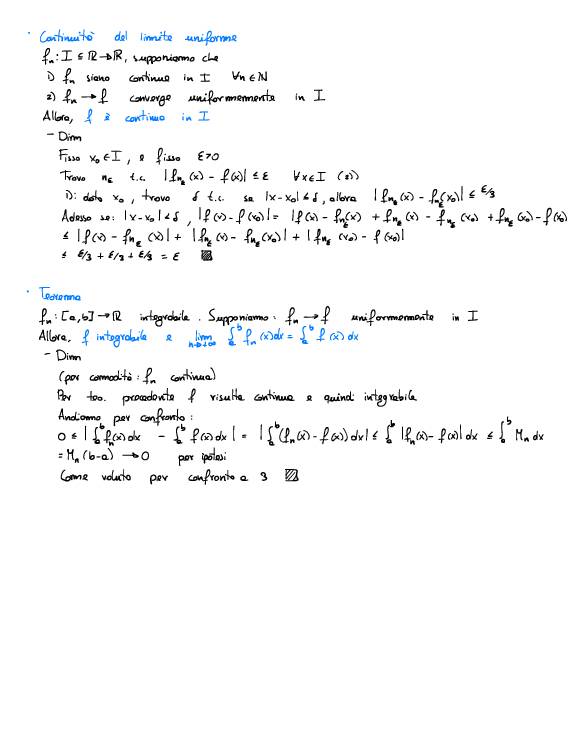 · Continuità del limite uniforme
fₙ: I ⊆ ℝ → ℝ, supponiamo che
1) fₙ siano continue in I ∀n ∈ ℕ
2) fₙ → f converge uniformemente in I
Allora, f è continua in I
– Dim
Fisso x₀ ∈ I, e fisso ε>0
Trovo n_ε t.c. |f_{n_ε}(x) - f(x)| ≤ ε ∀x∈I (2))
1): dato x₀, trovo δ t.c. se |x-x₀| ≤ δ, allora |f_{n_ε}(x) - f_{n_ε}(x₀)| ≤ ε/3
Adesso se: |x-x₀| ≤ δ, |f(x) - f(x₀)| = |f(x) - f_{n_ε}(x) + f_{n_ε}(x) - f_{n_ε}(x₀) + f_{n_ε}(x₀) - f(x₀)|
≤ |f(x) - f_{n_ε}(x)| + |f_{n_ε}(x) - f_{n_ε}(x₀)| + |f_{n_ε}(x₀) - f(x₀)|
≤ ε/3 + ε/3 + ε/3 = ε
· Teorema
fₙ: [a,b] → ℝ integrabile. Supponiamo: fₙ → f uniformemente in I
Allora, f integrabile e lim_{n→+∞} ∫ₐᵇ fₙ(x)dx = ∫ₐᵇ f(x)dx
– Dim
(per comodità: fₙ continua)
Per teo. precedente f risulta continua e quindi integrabile
Andiamo per confronto:
0 ≤ |∫ₐᵇ fₙ(x)dx - ∫ₐᵇ f(x)dx| = |∫ₐᵇ (fₙ(x) - f(x))dx| ≤ ∫ₐᵇ |fₙ(x) - f(x)|dx ≤ ∫ₐᵇ Mₙ dx
= Mₙ(b-a) → 0 per ipotesi
Come voluto per confronto a 3